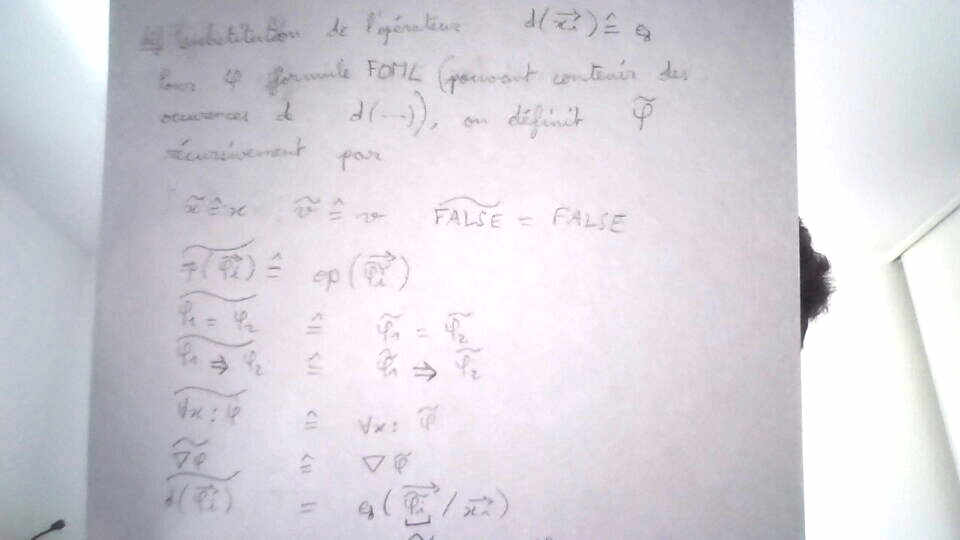 substitution de l'opérateur d(x⃗ᵢ) ≙ e
Pour φ formule FOML (pouvant contenir des
ocurences d d(...)), on définit φ̃
récursivement par
x̃ ≙ x ṽ ≙ v FALSE͠ = FALSE
≙ op(φ̃ᵢ⃗)
φ₁ = φ₂ ≙ φ̃₁ = φ̃₂
φ₁ ⇒ φ₂ ≙ φ̃₁ ⇒ φ̃₂
∀x : φ ≙ ∀x : φ̃
∇φ ≙ ∇φ̃
d(φ⃗ᵢ) = e(φ̃ᵢ⃗ / x⃗ᵢ)